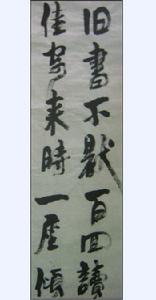 旧書不厭百回讀
佳客来時一座傾